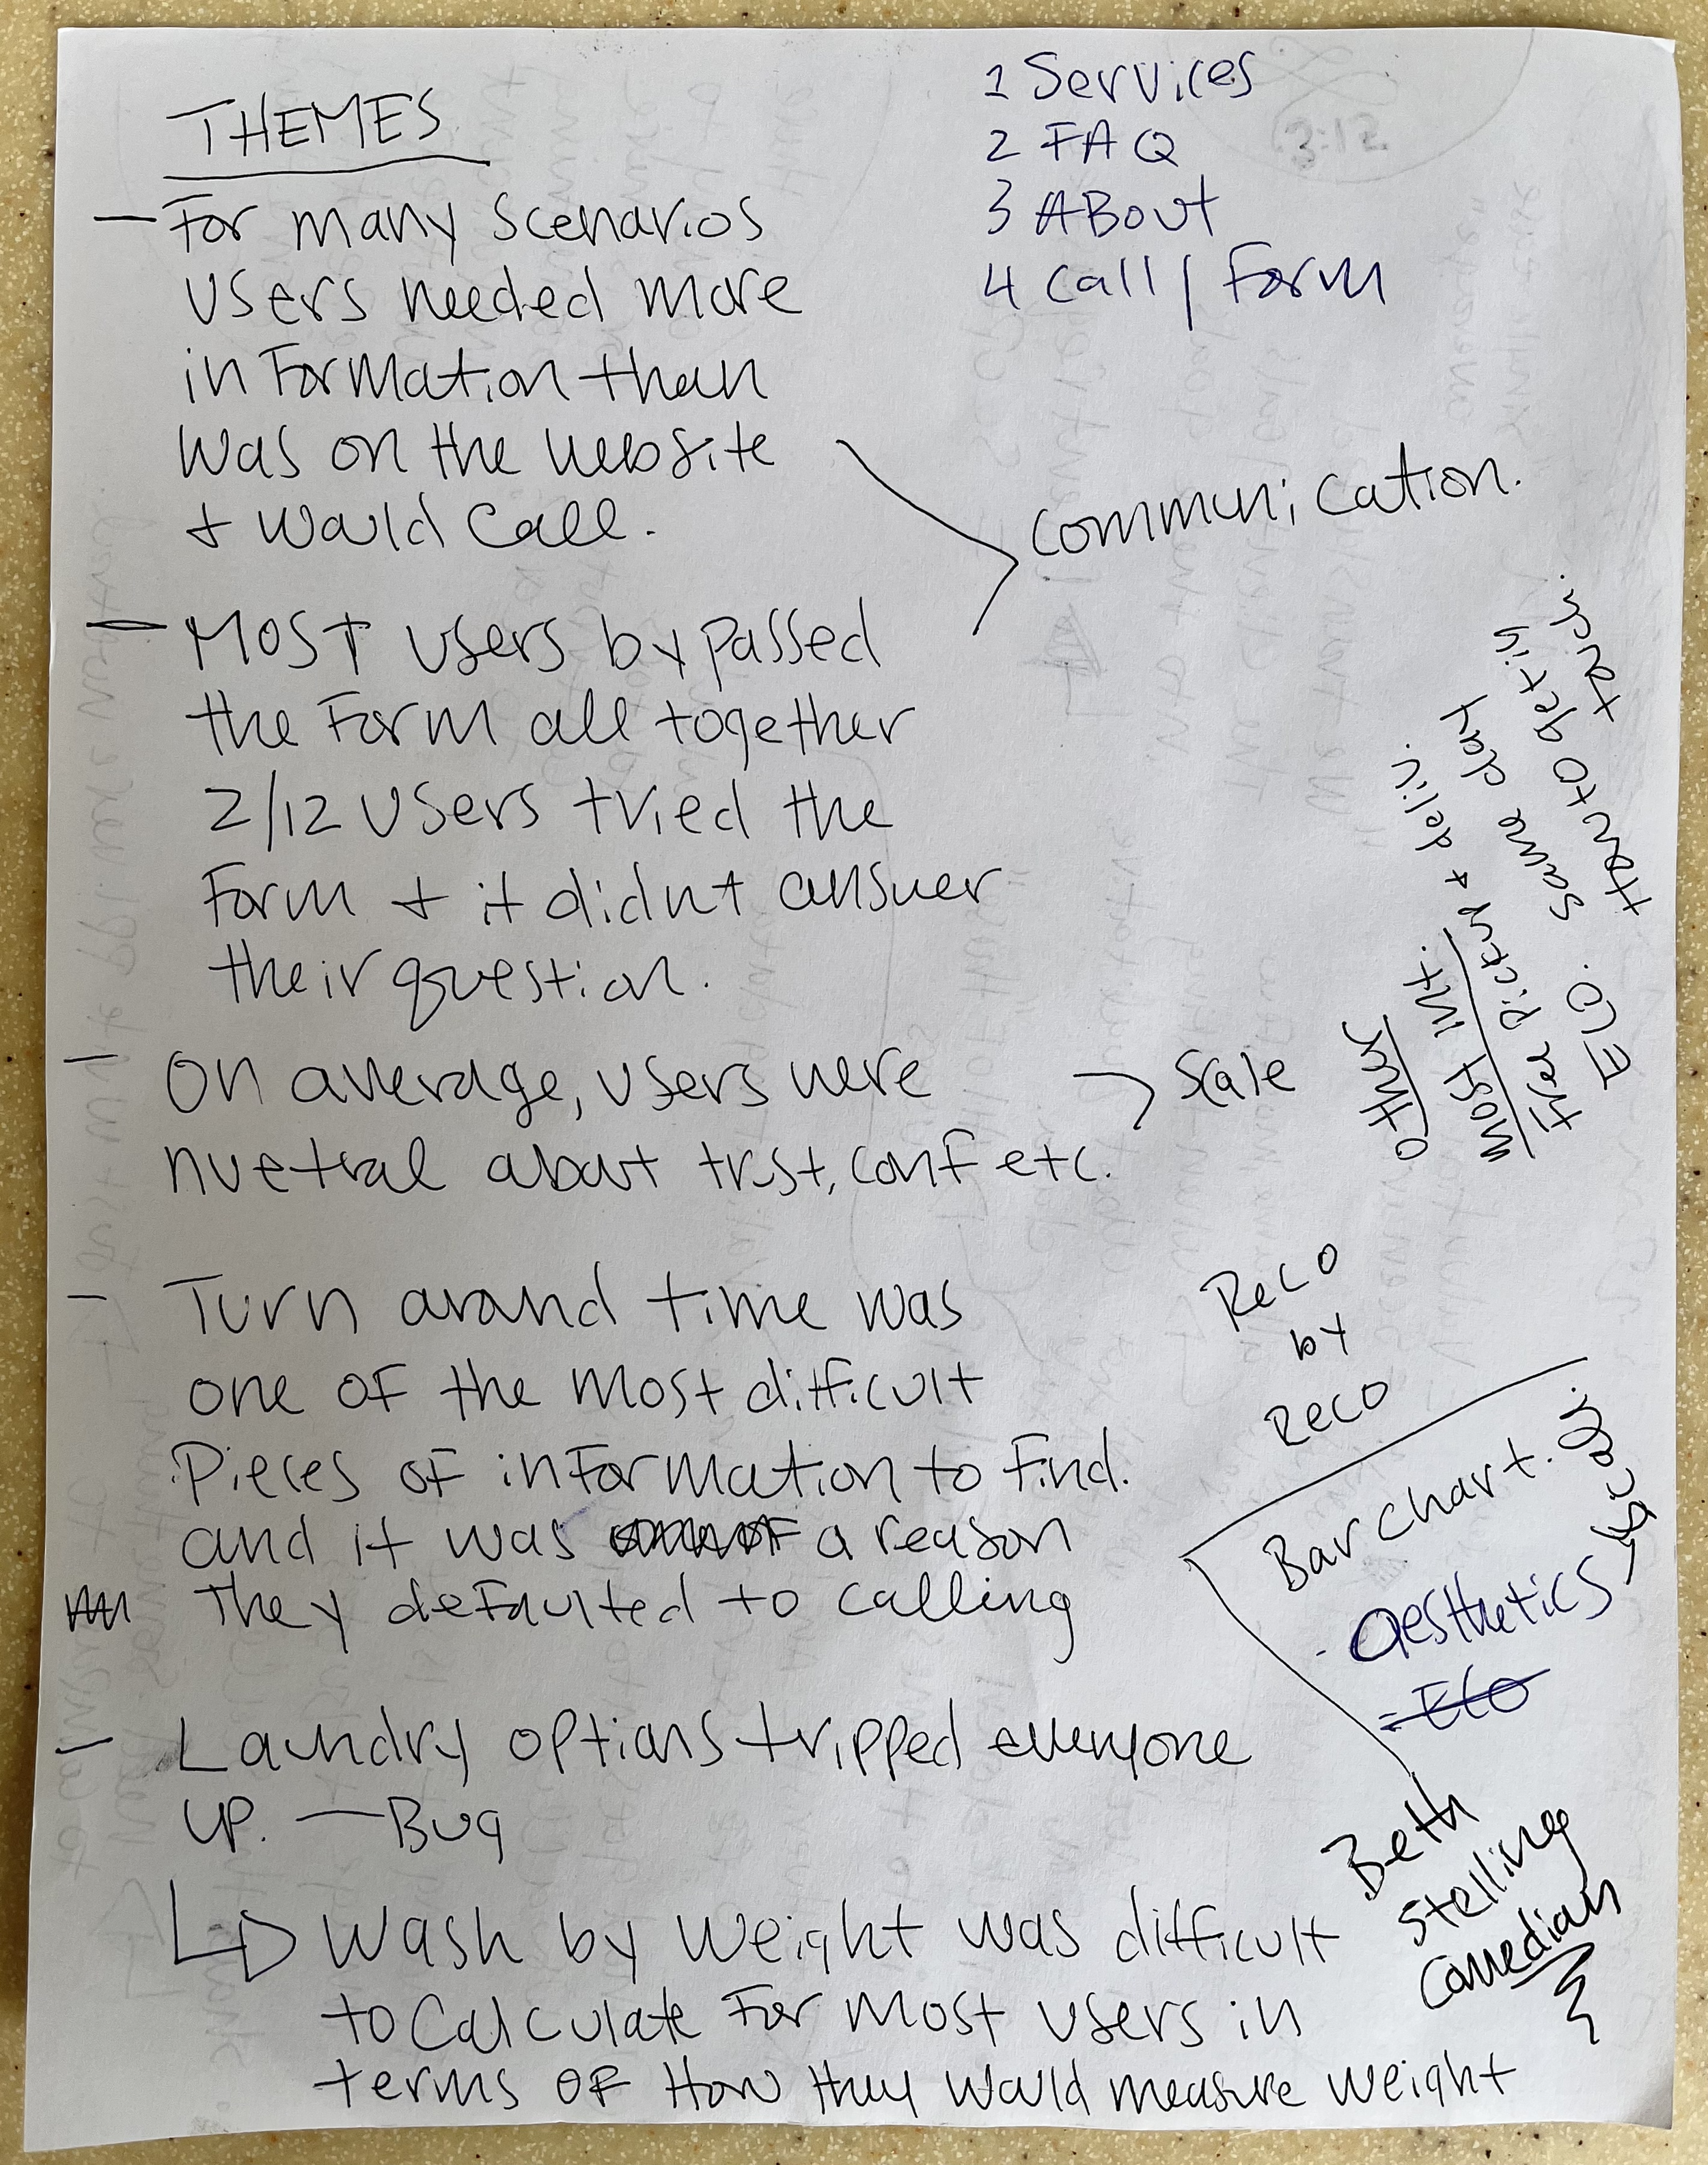 THEMES
- For many scenarios
users needed more
information than
was on the website
+ would call.
- Most users bypassed
the form all together
2/12 users tried the
form + it didnt answer
their question.
- On average, users were
nuetral about trust, conf etc.
- Turn around time was
one of the most difficult
Pieces of information to find.
and it was a reason
they defaulted to calling
- Laundry options tripped everyone
up. — Bug
Wash by weight was difficult
to calculate for most users in
terms of how they would measure weight
1 Services
2 FAQ
3 About
4 Call / Form
communication.
Scale
other
most int.
free pickup + deliv.
Eco. same day
How to get in
touch.
Reco
by
Reco
Bar chart.
- aesthetics
- Eco
Beth
Stelling
Comedian
3:12